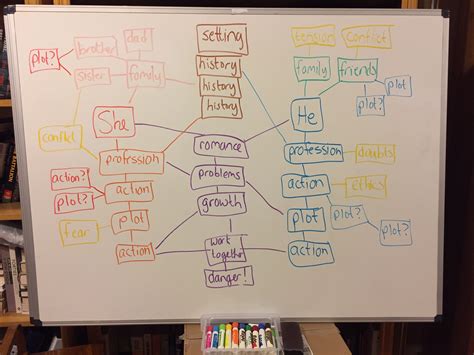 dad
setting
tension
conflict
brother
plot?
history
family
friends
sister
family
history
plot
plot?
history
She
He
conflict
romance
profession
profession
doubts
action?
problems
action
action
ethics
plot?
growth
plot
plot
plot?
plot?
fear
action
work
together
action
danger!